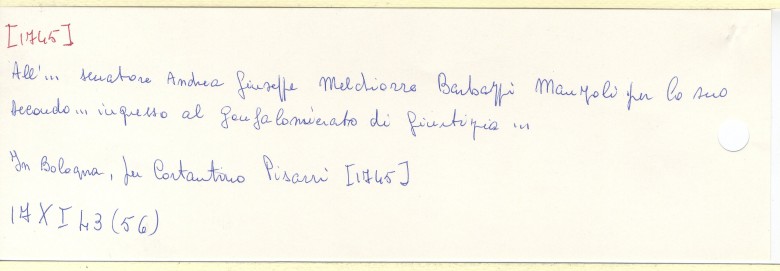 [1745]
All'... senatore Andrea Giuseppe Melchiorre Barbazzi Manzoli per lo suo
secondo... ingresso al Gonfalonierato di Giustizia ...
In Bologna, per Costantino Pisarri [1745]
17 X I 43 (56)